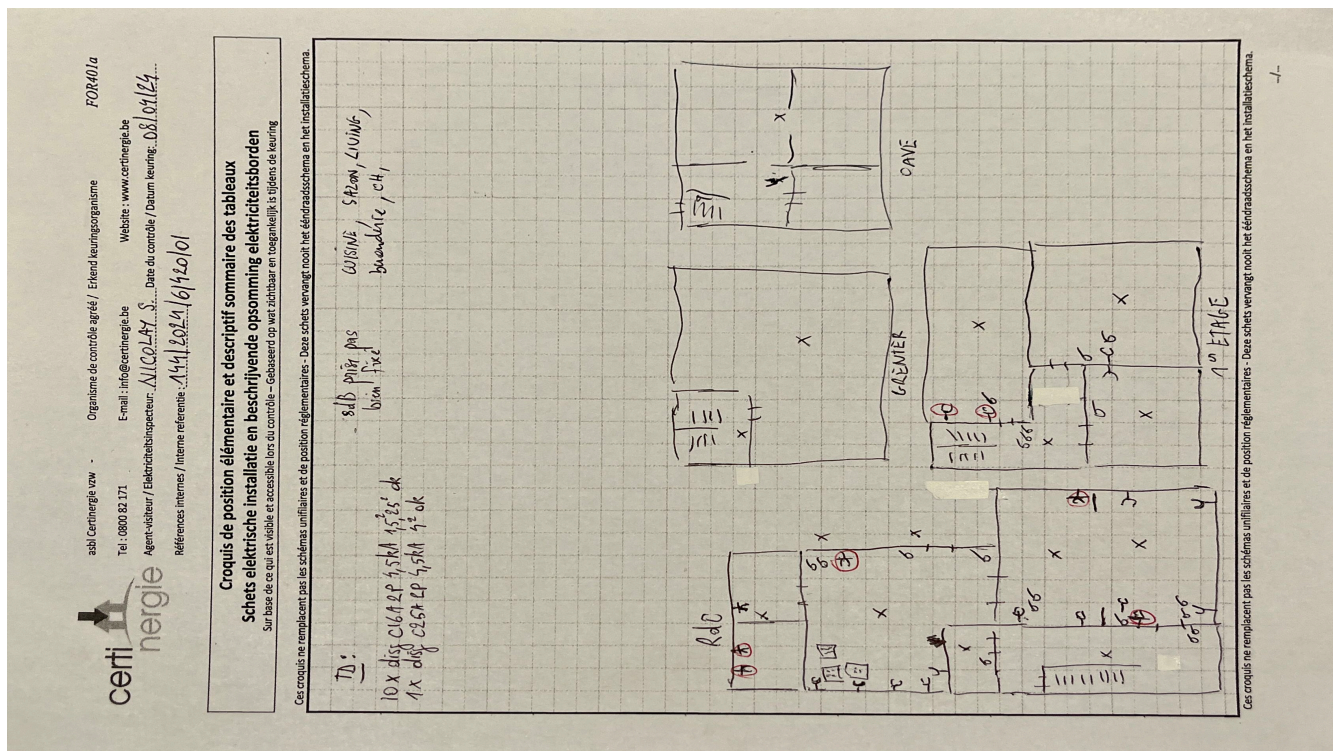 certinergie
asbl Certinergie vzw - Organisme de contrôle agréé / Erkend keuringsorganisme FOR401a
Tel : 0800 82 171 E-mail : info@certinergie.be Website : www.certinergie.be
Agent-visiteur / Elektriciteitsinspecteur: NICOLAY S. Date du contrôle / Datum keuring: 08/04/24
Références internes / Interne referentie : 144/2024/6/420/01
Croquis de position élémentaire et descriptif sommaire des tableaux
Schets elektrische installatie en beschrijvende opsomming elektriciteitsborden
Sur base de ce qui est visible et accessible lors du contrôle – Gebaseerd op wat zichtbaar en toegankelijk is tijdens de keuring
Ces croquis ne remplacent pas les schémas unifilaires et de position réglementaires - Deze schets vervangt nooit het ééndraadsschema en het installatieschema.
TD:
10 x disj C16A 2P 4,5kA 1,5², 2,5² ok
1 x disj C25A 2P 4,5kA 4² ok
- SdB pas
bien fixé
CUISINE, SALON, LIVING,
buanderie, CH,
RdC
GRENIER
CAVE
1er ETAGE
Ces croquis ne remplacent pas les schémas unifilaires et de position réglementaires - Deze schets vervangt nooit het ééndraadsschema en het installatieschema.
-/-